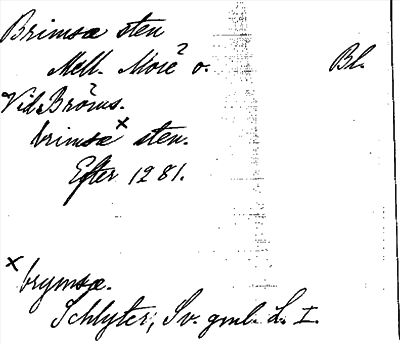 Brimsæ sten
Mell. More? o. Bl.
Vid Bröms?
brimsæ x sten.
Efter 1281.
x brymsæ.
Schlyter, Sv. gml. L. I.